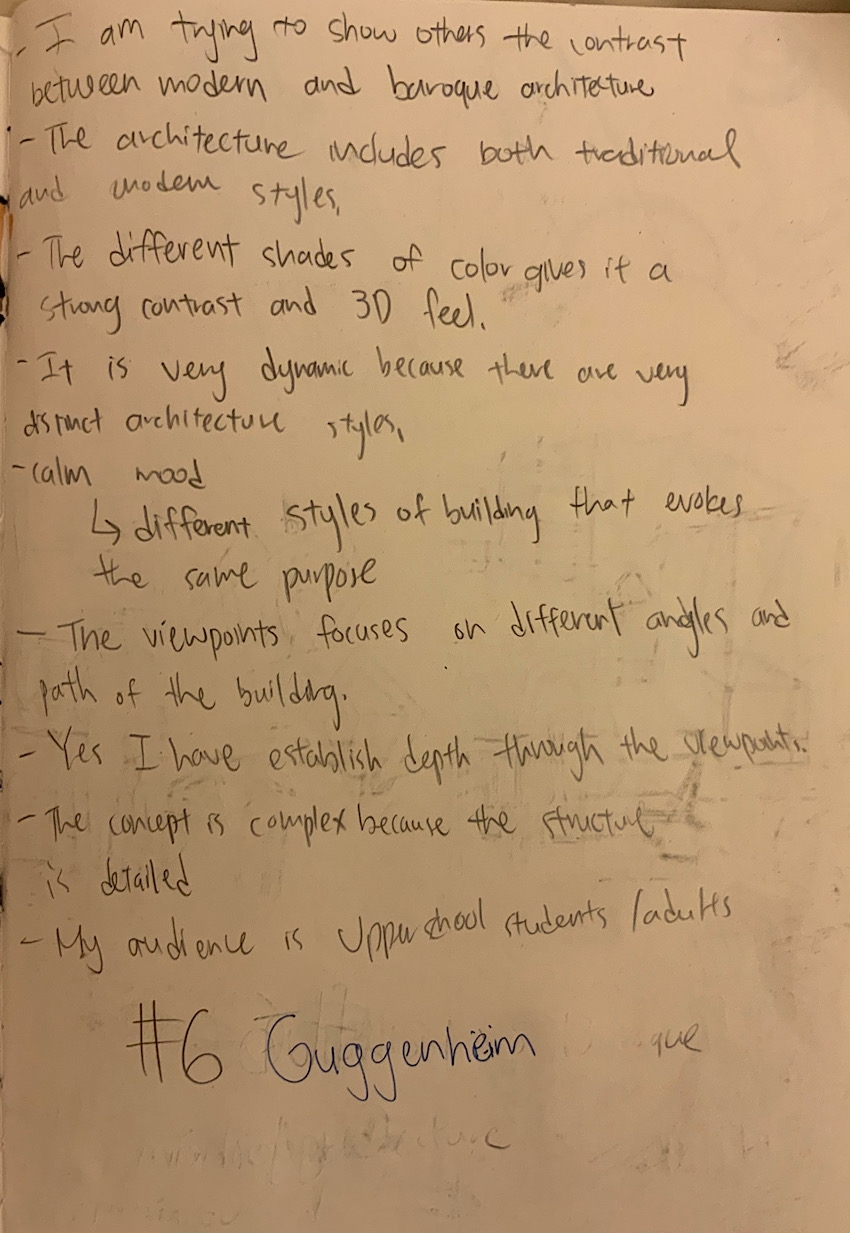 - I am trying to show others the contrast
between modern and baroque architecture
- The architecture includes both traditional
and modern styles.
- The different shades of color gives it a
strong contrast and 3D feel.
- It is very dynamic because there are very
distinct architecture styles.
- calm mood
↳ different styles of building that evokes
the same purpose
- The viewpoints focuses on different angles and
path of the building.
- Yes I have establish depth through the viewpoints.
- The concept is complex because the structure
is detailed
- My audience is Upper school students /adults
#6 Guggenheim
que